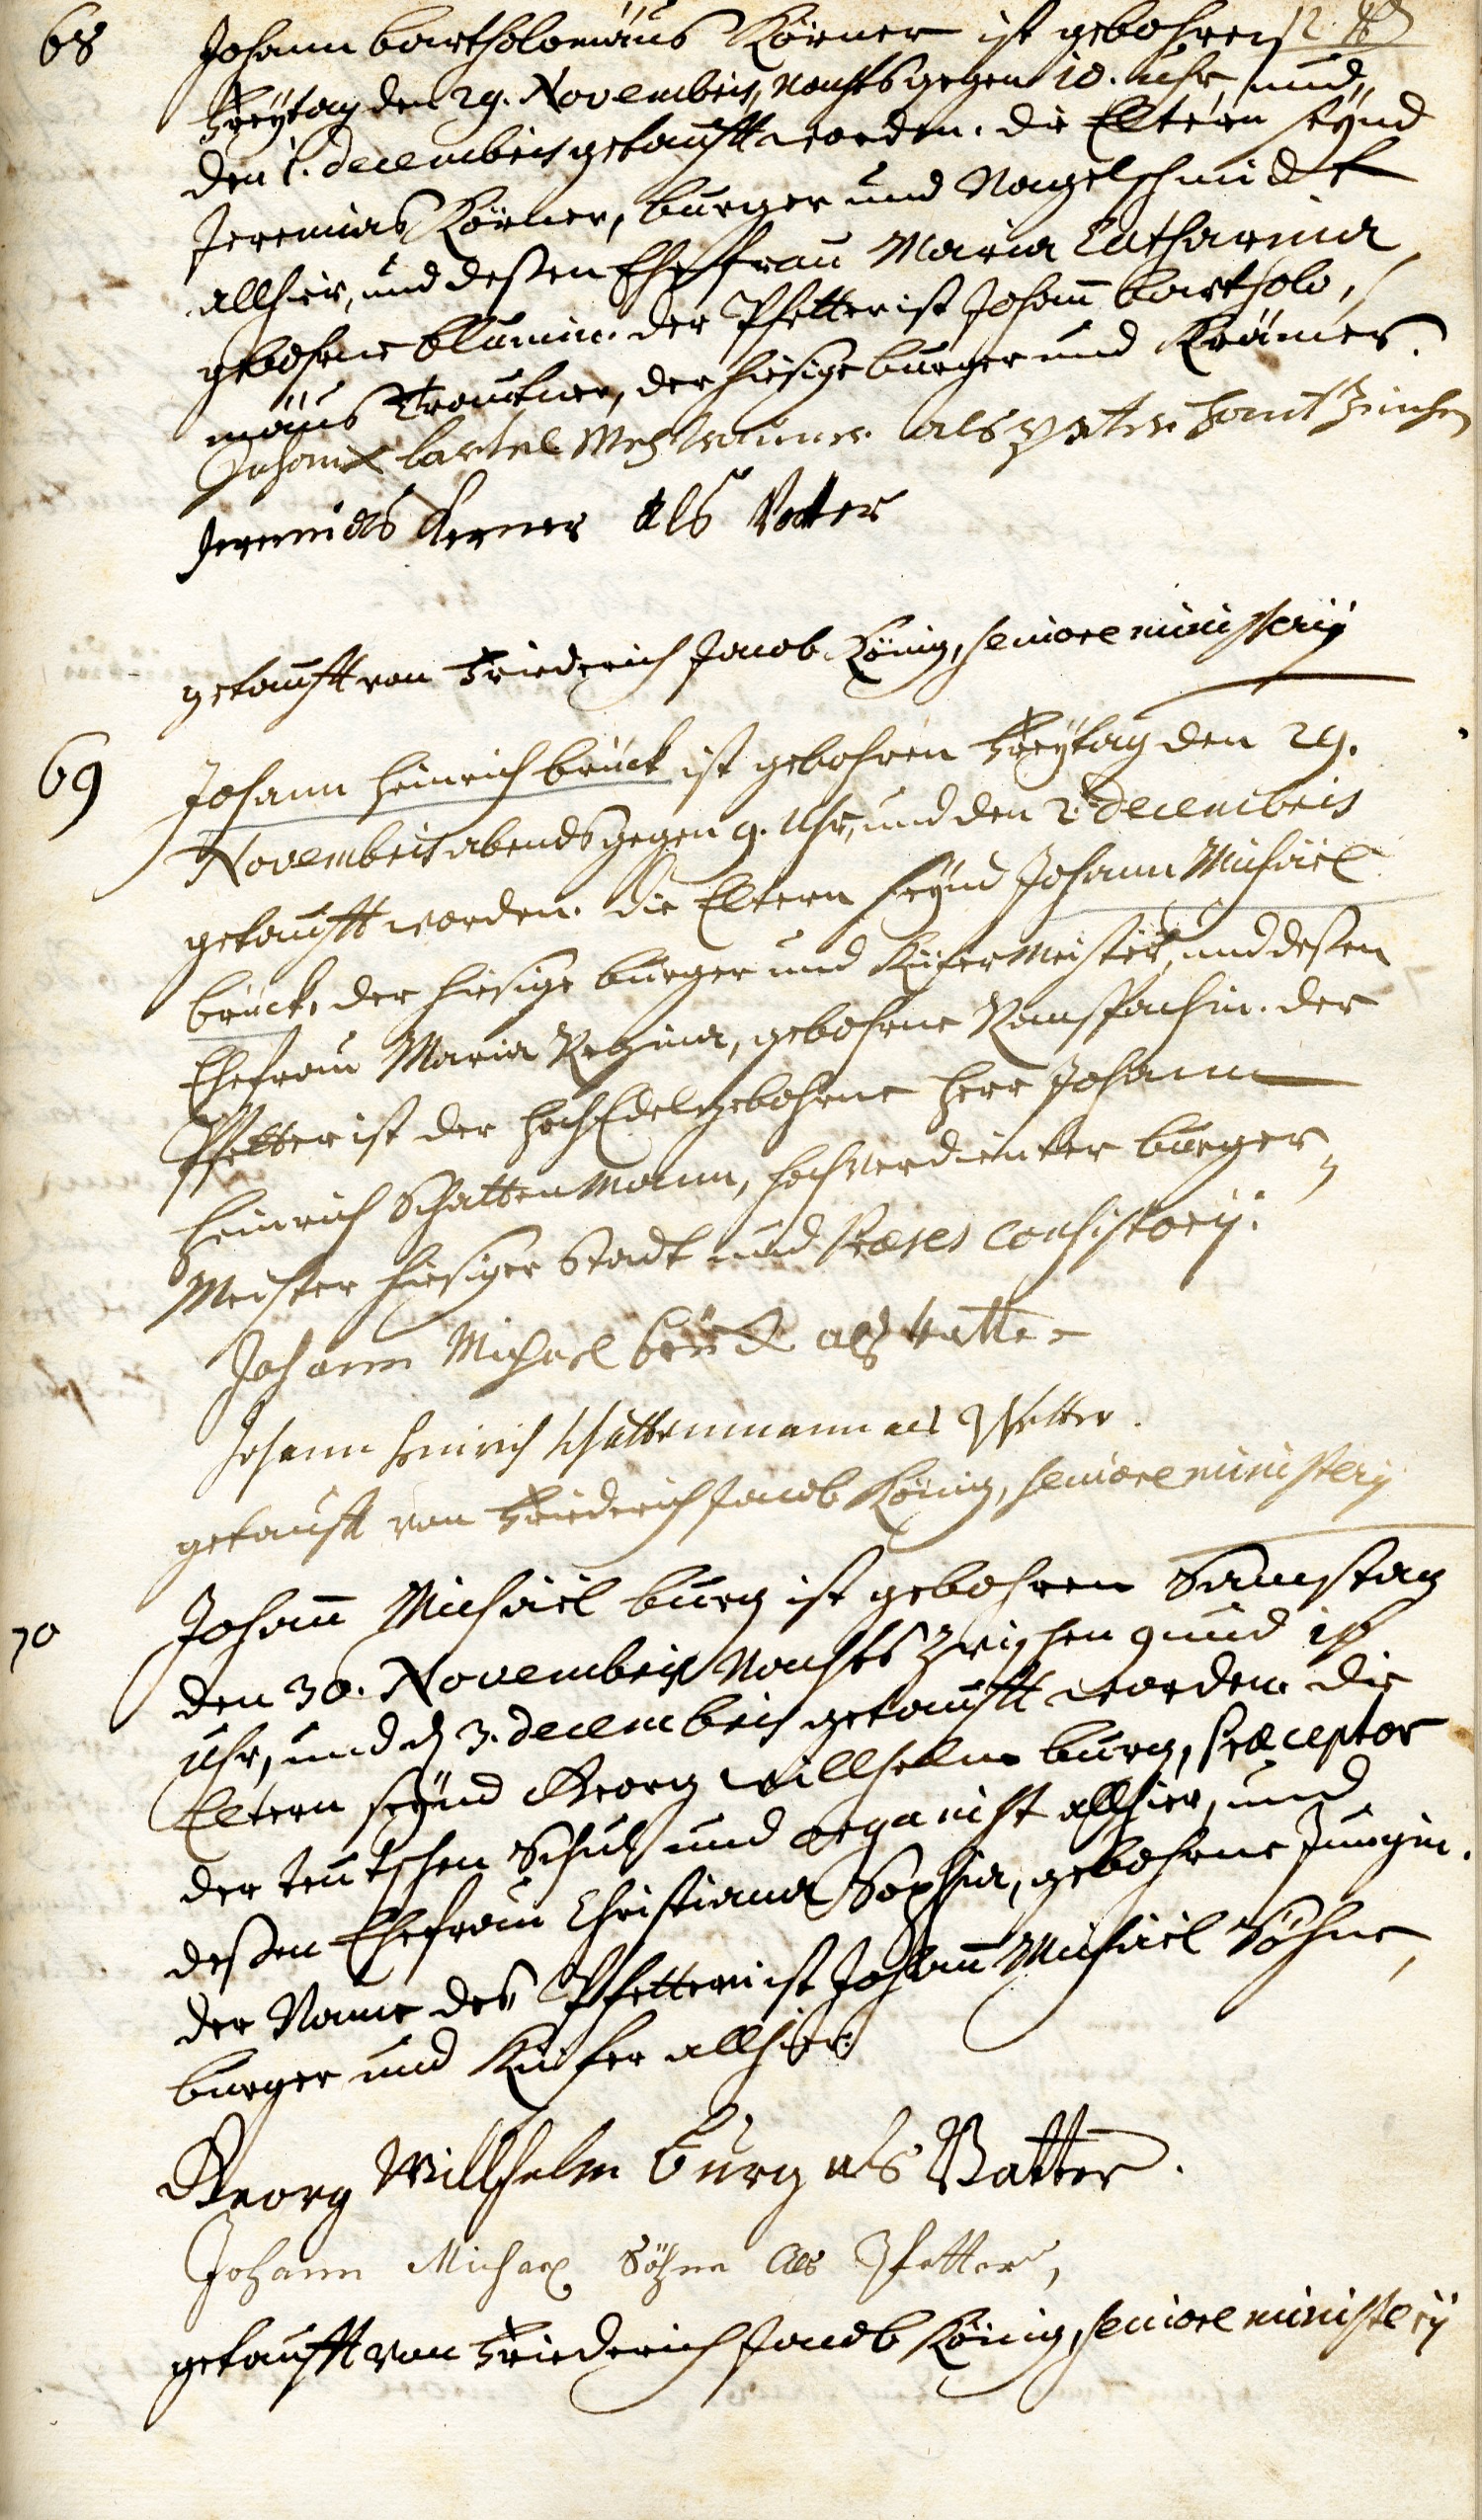 68 Johann bartholomäus Körner ist gebohren
Freytag den 29. Novembris, Nachts gegen 10. Uhr, und
den 1. Decembris getaufft worden. die Eltern seynd
Jeremias Körner, burger und Nagelschmidt
allhier, und deßen Eheffrau Maria Catharina,
gebohrne blumin. der Pfetter ist Johan̄ bartholo,
mäus Trautner, der hiesige burger und Krämer.
Johann bartel als
Jeremias Kerner als Vatter
getaufft von Friederich Jacob König, seniore ministerij
69 Johann Heinrich brück ist gebohren Freytag den 29.
Novembris abends gegen 9. Uhr, und den 2. decembris
getaufft worden. die Eltern seynd Johann Michäel
brück, der hiesige burger und Küfer Meister, und deßen
Ehefrau Maria Regina, gebohrne Ramspachin. der
Pfetter ist der HochEdelgebohrne Herr Johann
Heinrich Schattenmann, hochverdienter burger,
Meister hiesiger Stadt und Præses Consistorij.
Johann Michael brück als vatter
Johann Heinrich Schattenmann als Pfetter.
getaufft von Friederich Jacob König, seniore ministerij
70 Johan̄ Michäel burg ist gebohren Samstag
den 30. Novembris Nachts zwischen 9 und 10
Uhr, und d. 3. decembris getaufft worden die
Eltern seynd Georg willhelm burg, Præceptor
der teutschen Schul und organist allhier, und
deßen Ehefrau Christiana Sophia, gebohrne Jungin.
der Name des Pfettern ist Johan̄ Michäel Söhne,
burger und Küfer allhier.
Georg Willhelm Burg als Vatter.
Johann Michael Söhne als Pfetter,
getaufft von Friederich Jacob König, seniore ministerij